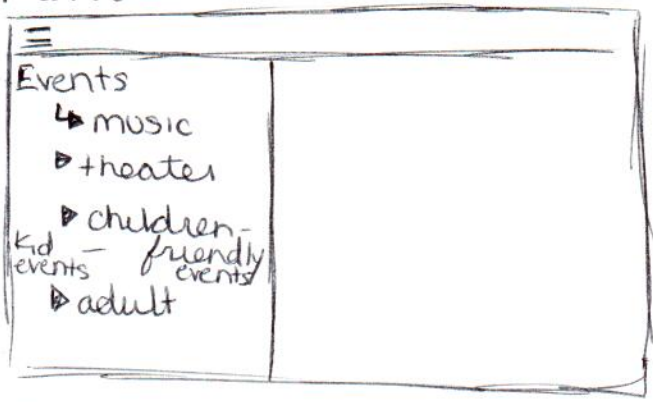 Events
music
theater
children-
Kid - friendly
events events
adult